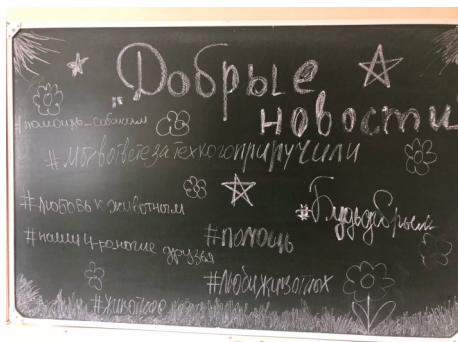 "Добрые
новости
#помощь_собакам
#Мывответезатехкогоприручили
#любовь к животным
#Будьдобрым
#наши 4-роногие друзья
#помощь
#Любиживотных
#животное